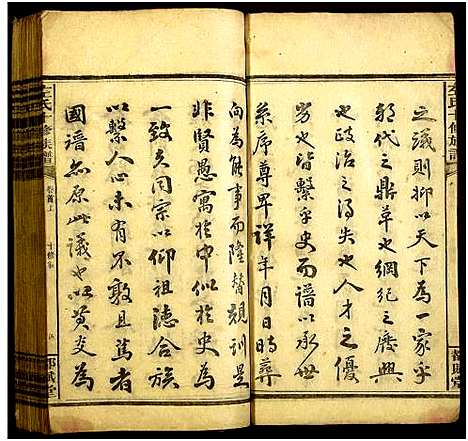 之議則抑以天下為一家乎
朝代之鼎革也綱紀之廢興
也政治之得失也人才之優
劣也皆繫乎史而譜以承世
系序尊卑詳年月日時葬
向為能事而隆替規訓是
非賢愚寓於中似於史為
一致矣同宗以仰祖德合族
以繫人心未有不敦且篤者
國譜亦原此議也以黃支為
左氏十修族譜
卷首上